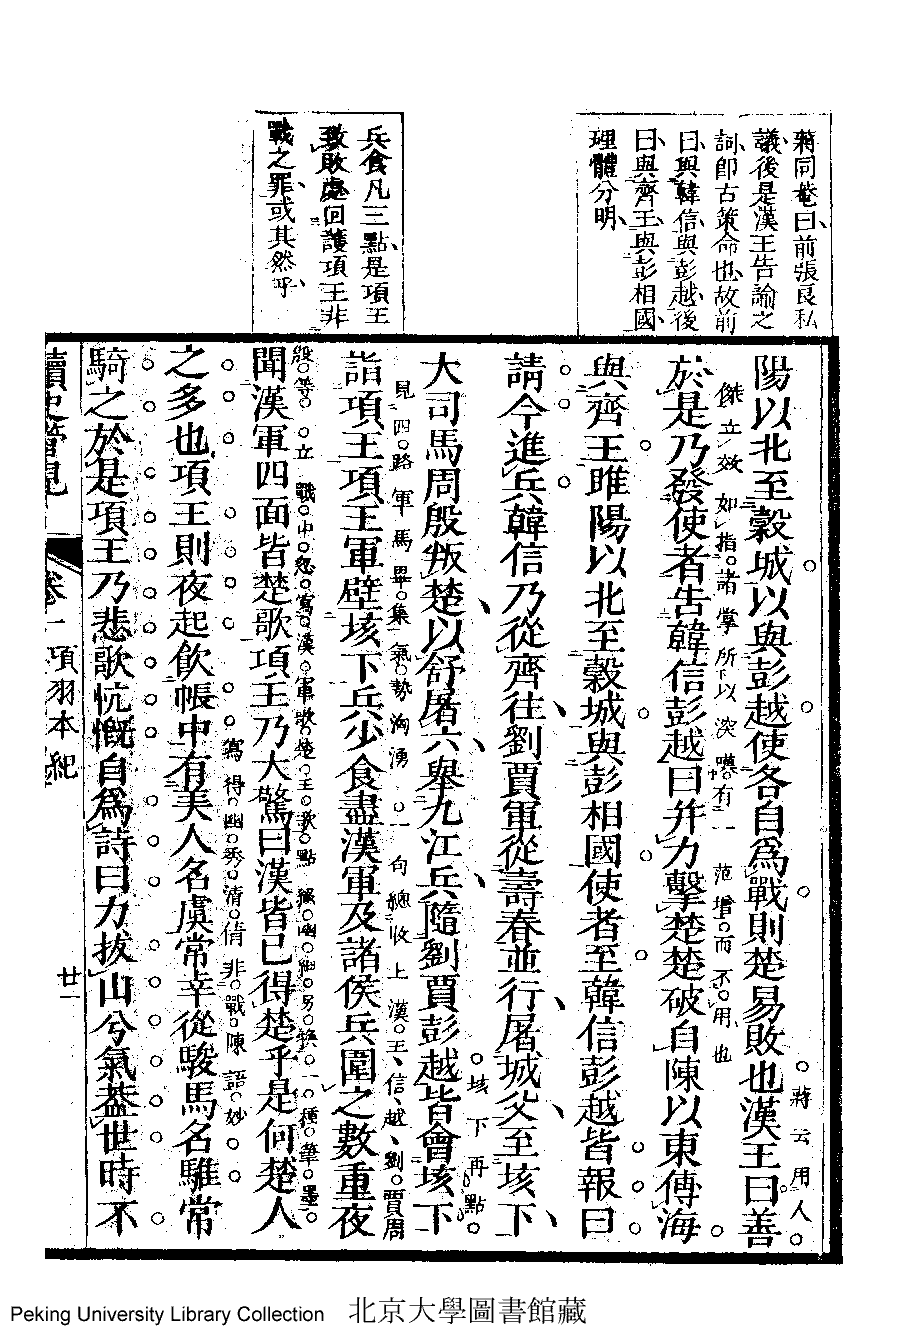 蔣同菴曰前張良私
議後是漢王告諭之
詞卽古策命也故前
曰與韓信與彭越後
曰與齊王與彭相國
理體分明
兵食凡三點是項王
致敗處回護項王非
戰之罪或其然乎
陽以北至穀城以與彭越使各自爲戰則楚易敗也漢王曰善
蔣云用人
傑立效如指諸掌所以深嘆有一范增而不用也
於是乃發使者告韓信彭越曰并力擊楚楚破自陳以東傅海
與齊王睢陽以北至穀城與彭相國使者至韓信彭越皆報曰
請今進兵韓信乃從齊往劉賈軍從壽春並行屠城父至垓下
大司馬周殷叛楚以舒屠六舉九江兵隨劉賈彭越皆會垓下
垓下再點
見四路軍馬畢集氣勢洶湧一句總收上漢王信越劉賈周
詣項王項王軍壁垓下兵少食盡漢軍及諸侯兵圍之數重夜
殷等立戰中忽寫漢軍歌楚王歌點綴幽細另換一種筆墨
聞漢軍四面皆楚歌項王乃大驚曰漢皆已得楚乎是何楚人
寫得幽秀清倩非戰陳語妙
之多也項王則夜起飮帳中有美人名虞常幸從駿馬名騅常
騎之於是項王乃悲歌忼慨自爲詩曰力拔山兮氣蓋世時不
讀史管見
卷一
項羽本紀
廿一
Peking University Library Collection 北京大學圖書館藏